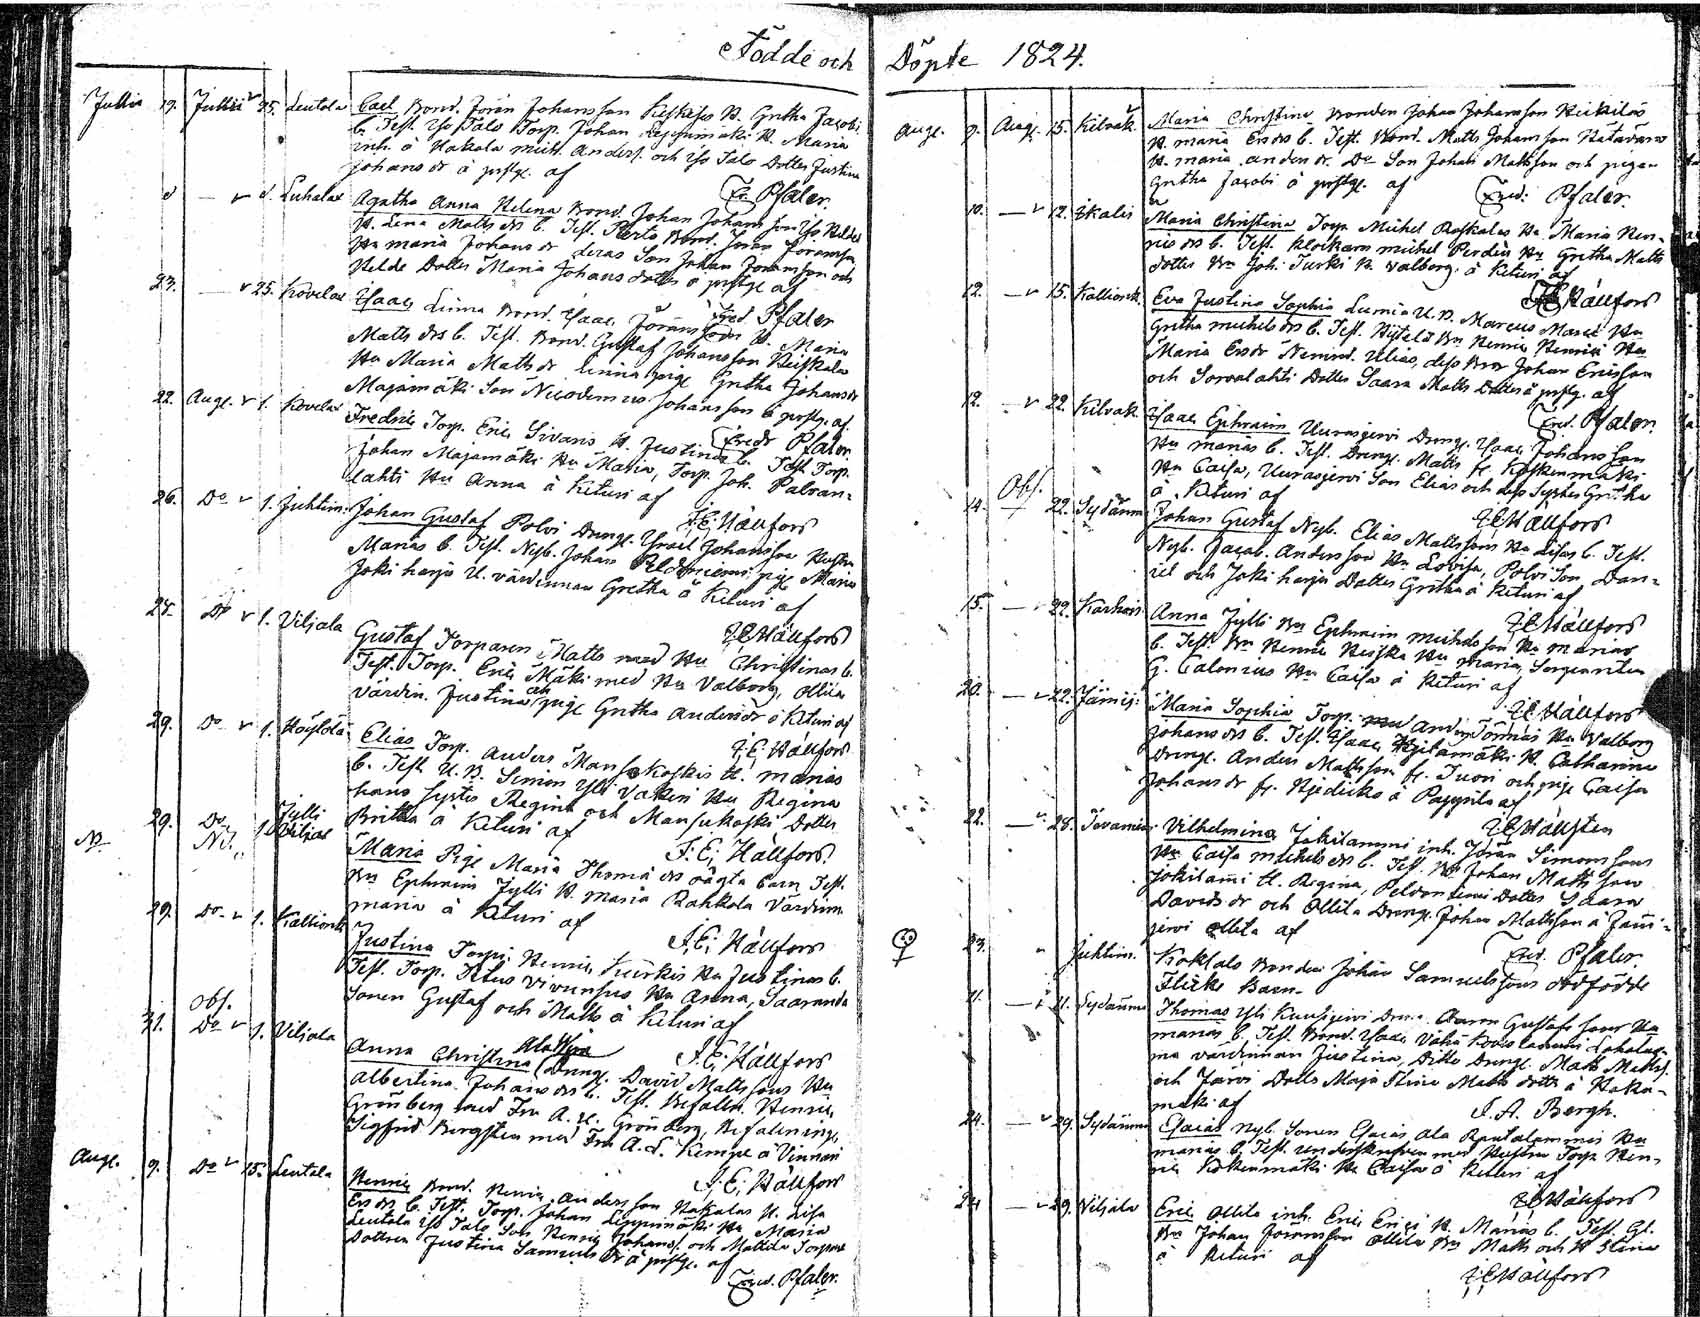 Födde och
Döpte 1824.
Julii 19. Julii v 25. Leutola Carl Bond. Jöran Johansson Keskiss H. Gretha Jacobi
b. Test. Iso Talo Torp. Johan Leppimäki H. Maria
inh. å Hakola Mich. Anders. och Iso Talo Dotter Justina
Johans dr å prstge. af
Fr. Pfaler.
d — v d. Luhalax Agatha Anna Helena Bond. Johan Johansson Iso
H. Lena Matts drs b. Test. Bond. Jöran Göransson
Hu Maria Johans dr deras Son Johan Göransson och
Dotter Maria Johans dotter å prstge af
Fred. Pfaler
23. — v 25. Kovelax Isaac Linna Bond. Isaac Jöransson H. Maria
Matts drs b. Test. Bond. Gustaf Johansson Heiskala
Hu Maria Matts dr Linna pige Gretha Johans dr
Majamäki Son Nicodemus Johansson å prstg. af
Fredr Pfaler.
22. Aug. v 1. Kovelax Fredric Torp. Eric Sivaris H. Justinas b. Test. Torp.
Johan Majamäki Hu Maria, Torp. Joh. Palvan=
lahti Hu Anna å Kituri af
F. E. Hällfors
26. Do v 1. Juhtim. Johan Gustaf Polvi Dreng. Israel Johansson Hustru
Marias b. Test. Nyb. Johan Peldoniemi pige Maria
Joki harju U. värdinnan Gretha å Kituri af
F E Hällfors
28. Do v 1. Viljala Gustaf Torparen Matts med Hu Christinas b.
Test. Torp. Eric Mäki med Hu Valborg, Ollila
värdin. Justina och pige Gretha Anders dr å Kituri af
F. E. Hällfors
29. Do v 1. Höytölä Elias Torp. Anders Mansokoskis H. Marias
b. Test U. B. Simon Yli Vakeri Hu Regina
hans Syster Regina och Mansukoski Dotter
Britha å Kituri af
F. E. Hällfors.
N. 29. Do Nd. 1. Jylli Viljas Maria Pige Maria Thomæ drs oägta barn Test.
Bn Ephraim Jylli H. Maria Rahkola Värdinn.
Maria å Kituri af
F. E. Hällfors
29. Do v 1. Kallionk. Justina Torp. Henric Kuirkis Hu Justinas b.
Test. Torp. Titus Hu Anna, Saaranda
Sonen Gustaf och Matts å Kituri af
F. E. Hällfors
Obs.
31. Do v 1. Viljala Anna Christina Dreng. David Mattssons Hu
Albertina Johans drs b. Test. Befalln. Henric
Grönberg med Fru A. U. Grönberg, Befalnings
Sigfrid Bergsten med Fru A. L. Kempe å Vinnari
F. E. Hällfors
Aug. 9. Do v 15. Leutola Henric Bond. Henric Andersson Hakalas H. Lisa
Ers drs b. Test. Torp. Johan Leppimäki Hu Maria
Leutola Iso Talo Son Henric Johans. och Mattila Torpare
Dottren Justina Samuels dr å prstge. af
Fred. Pfaler.
Aug. 9. Aug. 15. Kilvak. Maria Christina Bonden Johan Johansson Heikiläs
H. Maria Ers drs b. Test. Bond. Matts Johansson Hatavars
H. Maria Anders dr. Do Son Johan Mattsson och pigan
Gretha Jacobi å prstge. af
Fred: Pfaler.
10. — v 12. Ikalis Maria Christina Torp Michel Roskalas Hu Maria Hen=
rics drs b. Test. klockaren Michel Perdén Hu Gretha Matts
dotter Bn Joh. Turki H. Valborg å Kituri af
F E Hällfors
12. — v 15. Kallionk. Eva Justina Sophia Lumia U. B. Marcus Marci Hu
Gretha Michels drs b. Test. Hytelä Bn Henric Henrici Hu
Maria Ers dr Nämnd. Ulias, dess Bror Johan Ericsson
och Sorvalahti Dotter Saara Matts dotter å prstg. af
Fred. Pfaler.
12. — v 22. Kilvak. Isaac Ephraim Uurasjervi Dreng. Isaac Johansson
Hu Marias b. Test. Dreng. Matts fr. Koskenmäki
Hu Caisa, Uurasjervi Son Elias och dess Syster Gretha
å Kituri af
F E Hällfors
Obs.
14. — 22. Sydänm. Johan Gustaf Nyb. Elias Mattssons Hu Lisas b. Test.
Nyb. Jacob Andersson Hu Lovisa, Polvi Son, Dan=
iel och Joki harju Dotter Gretha å Kituri af
F E Hällfors
15. — v 22. Karhois Anna Jylli Bn Ephraim Michelsson Hu Marias
b. Test. Bn Henric Heiska Hu Maria, Sergeanten
G. Calonius Hu Caisa å Kituri af
F E Hällfors
20. — v 22. Jämij: Maria Sophia Torp. And. Tönnäs Hu Valborg
Johans drs b. Test. Isaac Kytämäki H. Catharina
Dreng. Anders Mattsson fr. Tuori och pige Caisa
Johans dr fr. å Pappila af
F E Hällsten
22. — v 28. Tevanie: Vilhelmina Jokilammi inh. Jöran Simonssons
Hu Caisa Michels drs b. Test. Bn Johan Mattsson
Jokilami H. Regina, Peldoniemi Dotter Saara
Davids dr och Ollila Dreng. Johan Mattsson å Jämi=
jervi Ollila af
Fred. Pfaler.
23. " Juhtim. Koktals Bonden Johan Samuelssons dödfödde
Flicke Barn.
11. — v 11. Sydänm Thomas Yli Kuusjervi Dreng. Aaron Gustafssons Hu
Marias b. Test. Bond. Isaac Vähä
na värdinnan Justina, Ditto Dreng. Matts Matts.
och Järvi Dotter Maja Stina Matts dotter å Haka=
mäki af
J. A. Bergh.
24. — v 29. Sydänm Esaias Nyb. Sonen Esaias Ala Rautalammis Hu
Marias b. Test. undersknifven med Hustru Torp Hen=
ric Kokenmäki Hu Caisa å Kituri af
F E Hällfors
24 — v 29. Viljala Eric Ollila inh. Eric Erici H. Marias b. Test. Gl.
Bn Johan Jöransson Ollila Bn Matts och H. Stina
å Kituri af
F. E. Hällfors